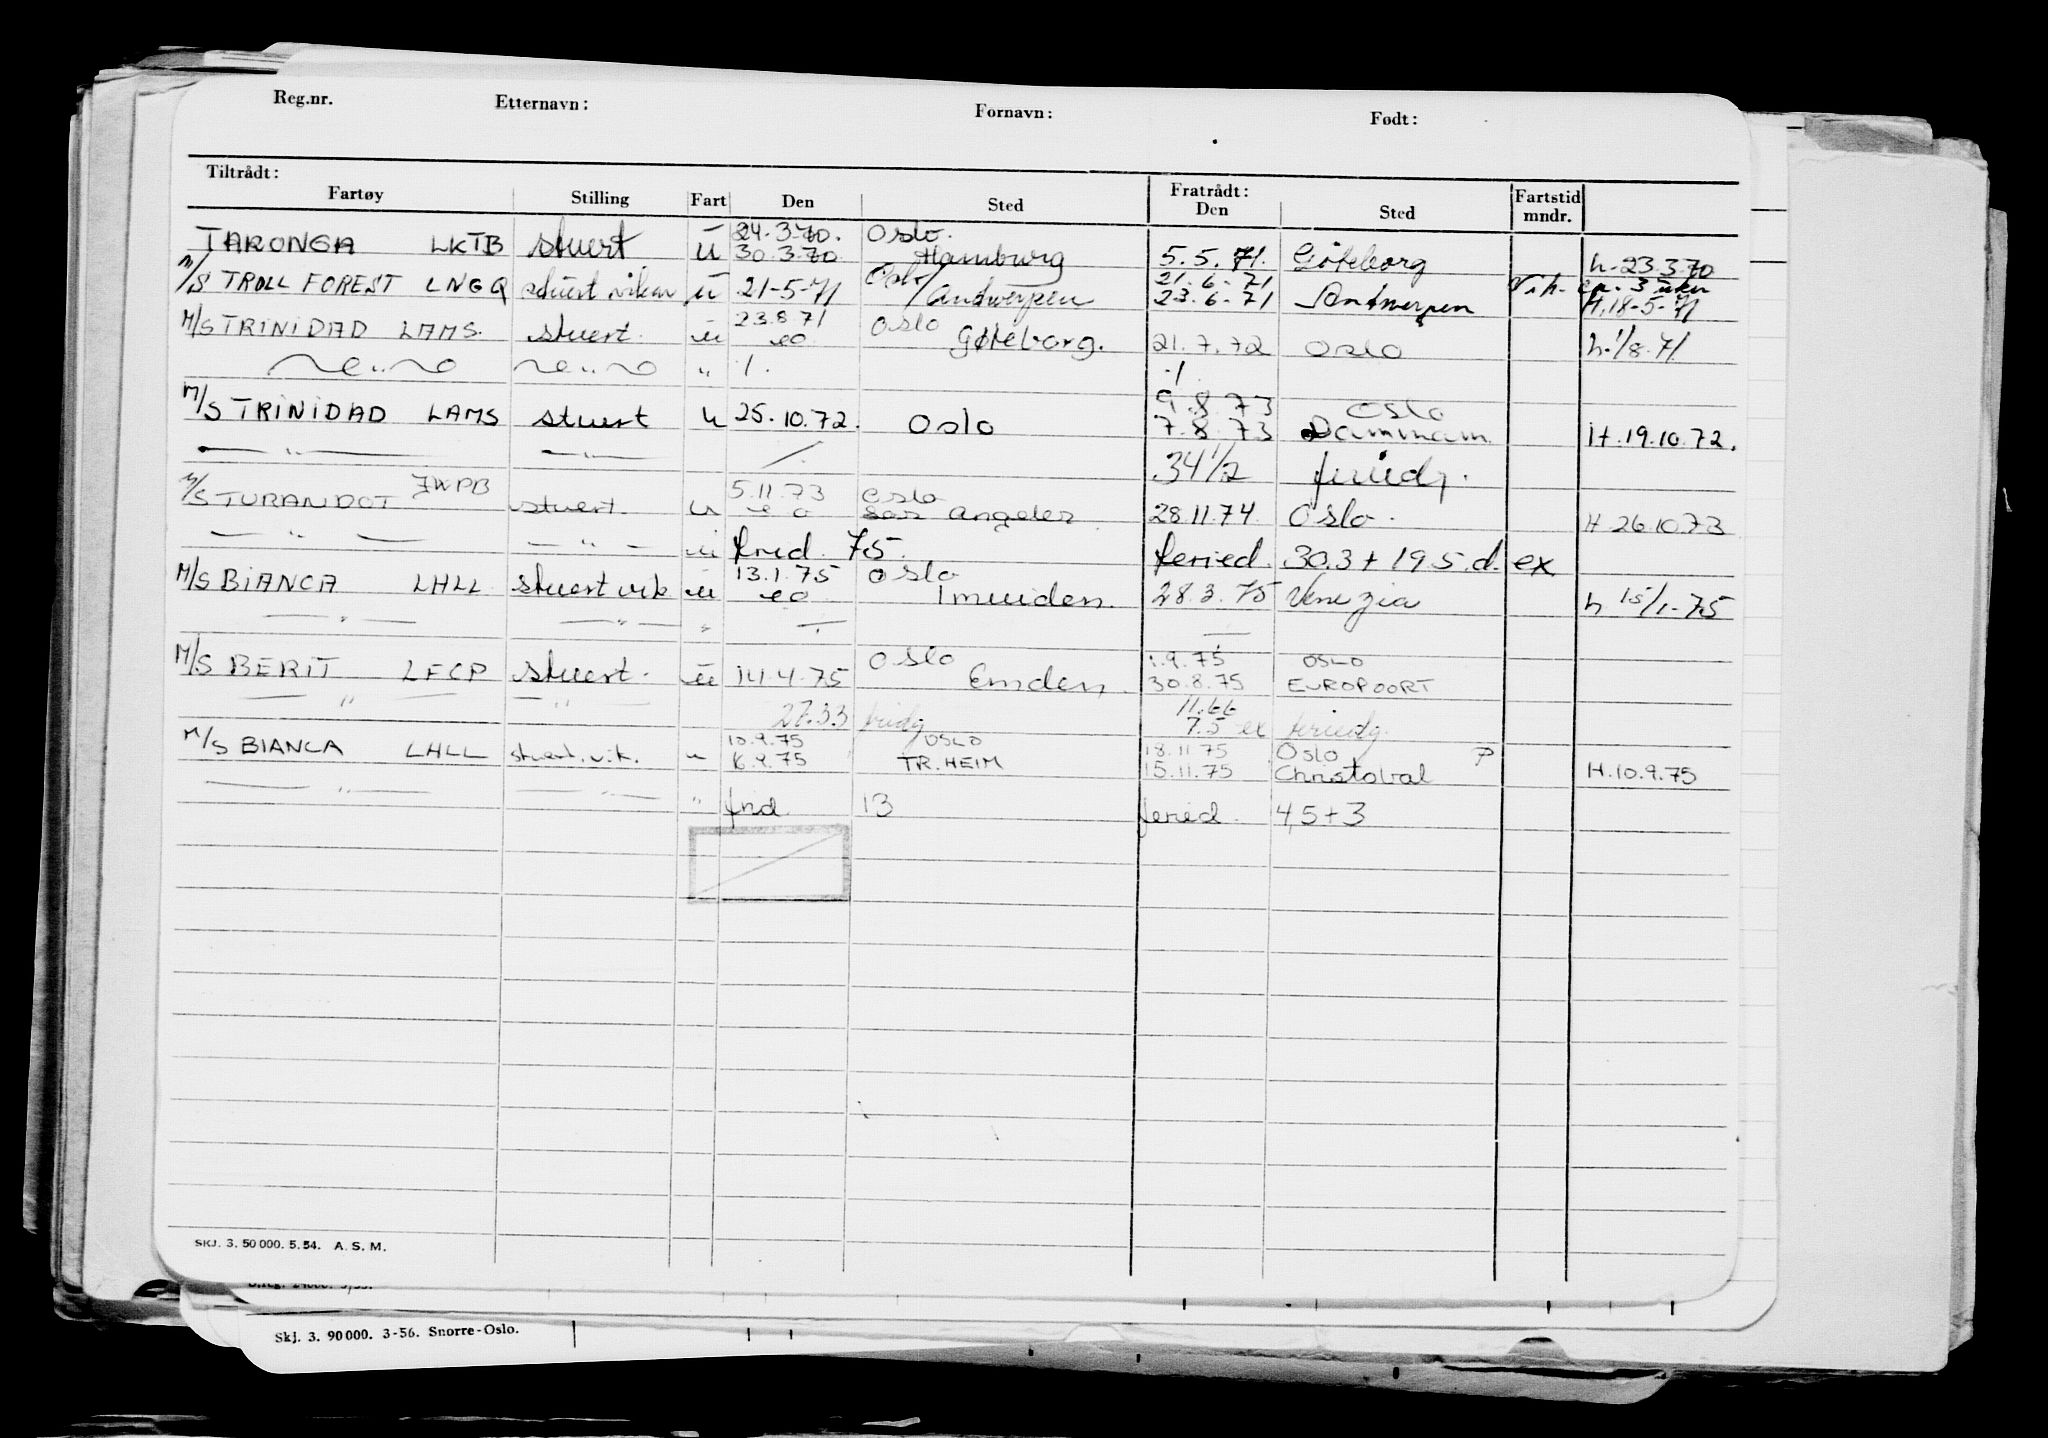 Reg.nr. Etternavn: Fornavn: Født:
Tiltrådt: Fratrådt:
Fartøy Stilling Fart Den Sted Den Sted Fartstid mndr.
24.3.70. Oslo.
TARONGA LKTB stuert u 30.3.70 Hamburg 5.5.71. Göteborg h. 23.3.70
Oslo/ 21.6.71 Vik. ca. 3 uker
M/S TROLL FOREST LNGQ stuert vikar u 21-5-71 Antwerpen 23.6.71 Antwerpen H. 18-5-71
23.8.71 Oslo
M/S TRINIDAD LAMS. stuert. u eo Gøteborg. 21.7.72 Oslo h. 1/8.71
— " — — " — " /. /.
9.8.73 Oslo
M/S TRINIDAD LAMS stuert u 25.10.72. Oslo 7.8.73 Dammam H. 19.10.72.
— " — — " — /. 34 1/2 friedg.
JWPB 5.11.73 Oslo
M/S TURANDOT stuert. u eo Los Angeles 28.11.74 Oslo. H 26.10.73
— " — — " — u frid. 7.5. feried. 30.3 + 19.5.d. ex
13.1.75 Oslo
M/S BIANCA LHLL stuert vik u eo Imuiden. 28.3.75 Venezia h 15/1-75
— " — — " — "
Oslo 1.9.75 OSLO
M/S BERIT LFCP stuert. u 14.4.75 Emden. 30.8.75 EUROPOORT
— " — — " — 11.66
27.33 fridg 7.5 ex feriedg.
10.9.75 OSLO 18.11.75 Oslo P
M/S BIANCA LHLL stuert. vik. u 16.9.75 TR.HEIM 15.11.75 Christobal H. 10.9.75
— " — — " — " frid. 13 feried. 4,5+3
SKJ. 3. 50 000. 5.54. A. S. M.
Skj. 3. 90 000. 3-56. Snorre-Oslo.